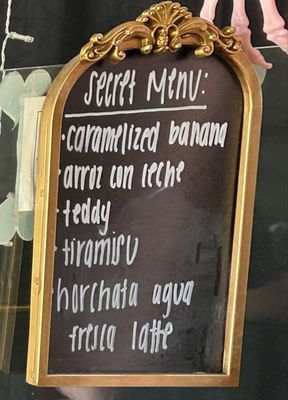 Secret Menu:
· caramelized banana
· arroz con leche
· teddy
· tiramisu
· horchata agua
fresca latte